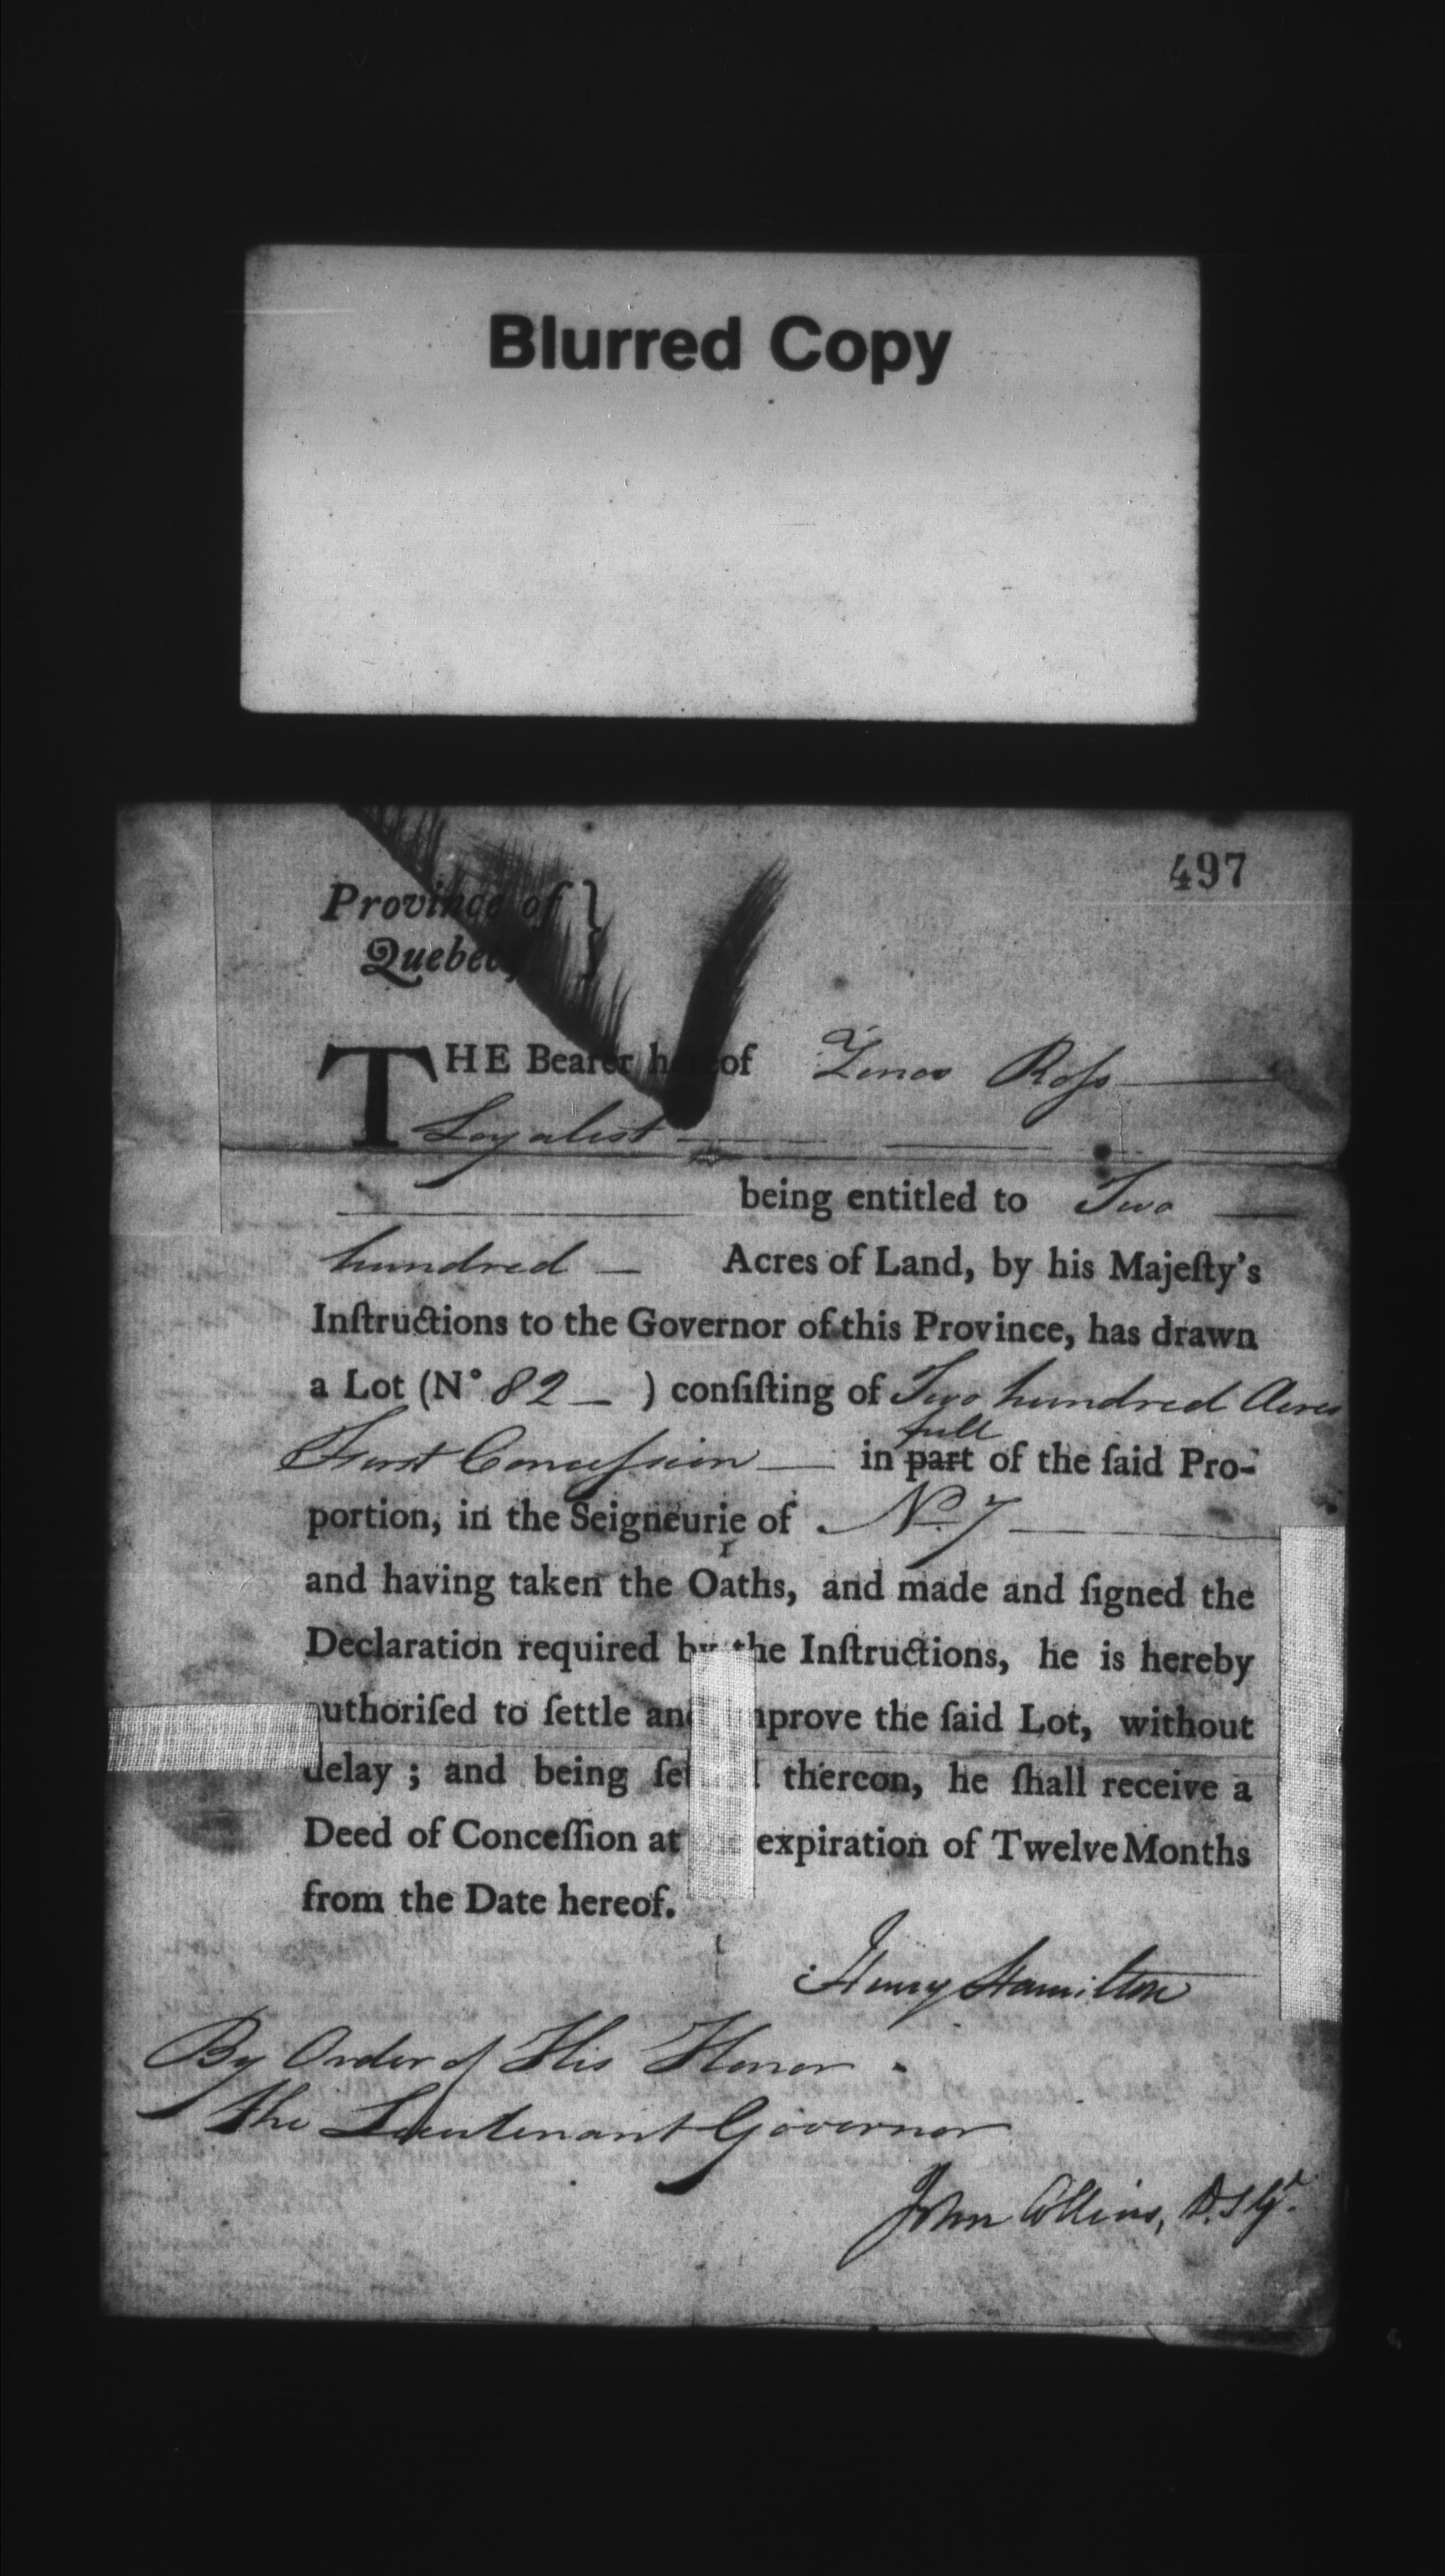 Blurred Copy
497
Province of }
Quebec, }
THE Bearer hereof Zenas Ross
Loyalist
being entitled to Two
hundred Acres of Land, by his Majeſty's
Inſtructions to the Governor of this Province, has drawn
a Lot (N° 82 ) conſiſting of Two hundred Acres
First Conceſsion in part full of the ſaid Pro-
portion, in the Seigneurie of No. 7
and having taken the Oaths, and made and ſigned the
Declaration required by the Inſtructions, he is hereby
authoriſed to ſettle and improve the ſaid Lot, without
delay ; and being ſettled thereon, he ſhall receive a
Deed of Conceſſion at expiration of Twelve Months
from the Date hereof.
Henry Hamilton
By Order of His Honor
the Lieutenant Governor
John Collins, D.S.Gl.